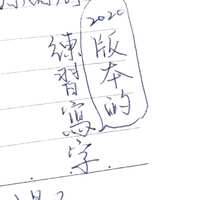 2020
版本的
練習寫字.